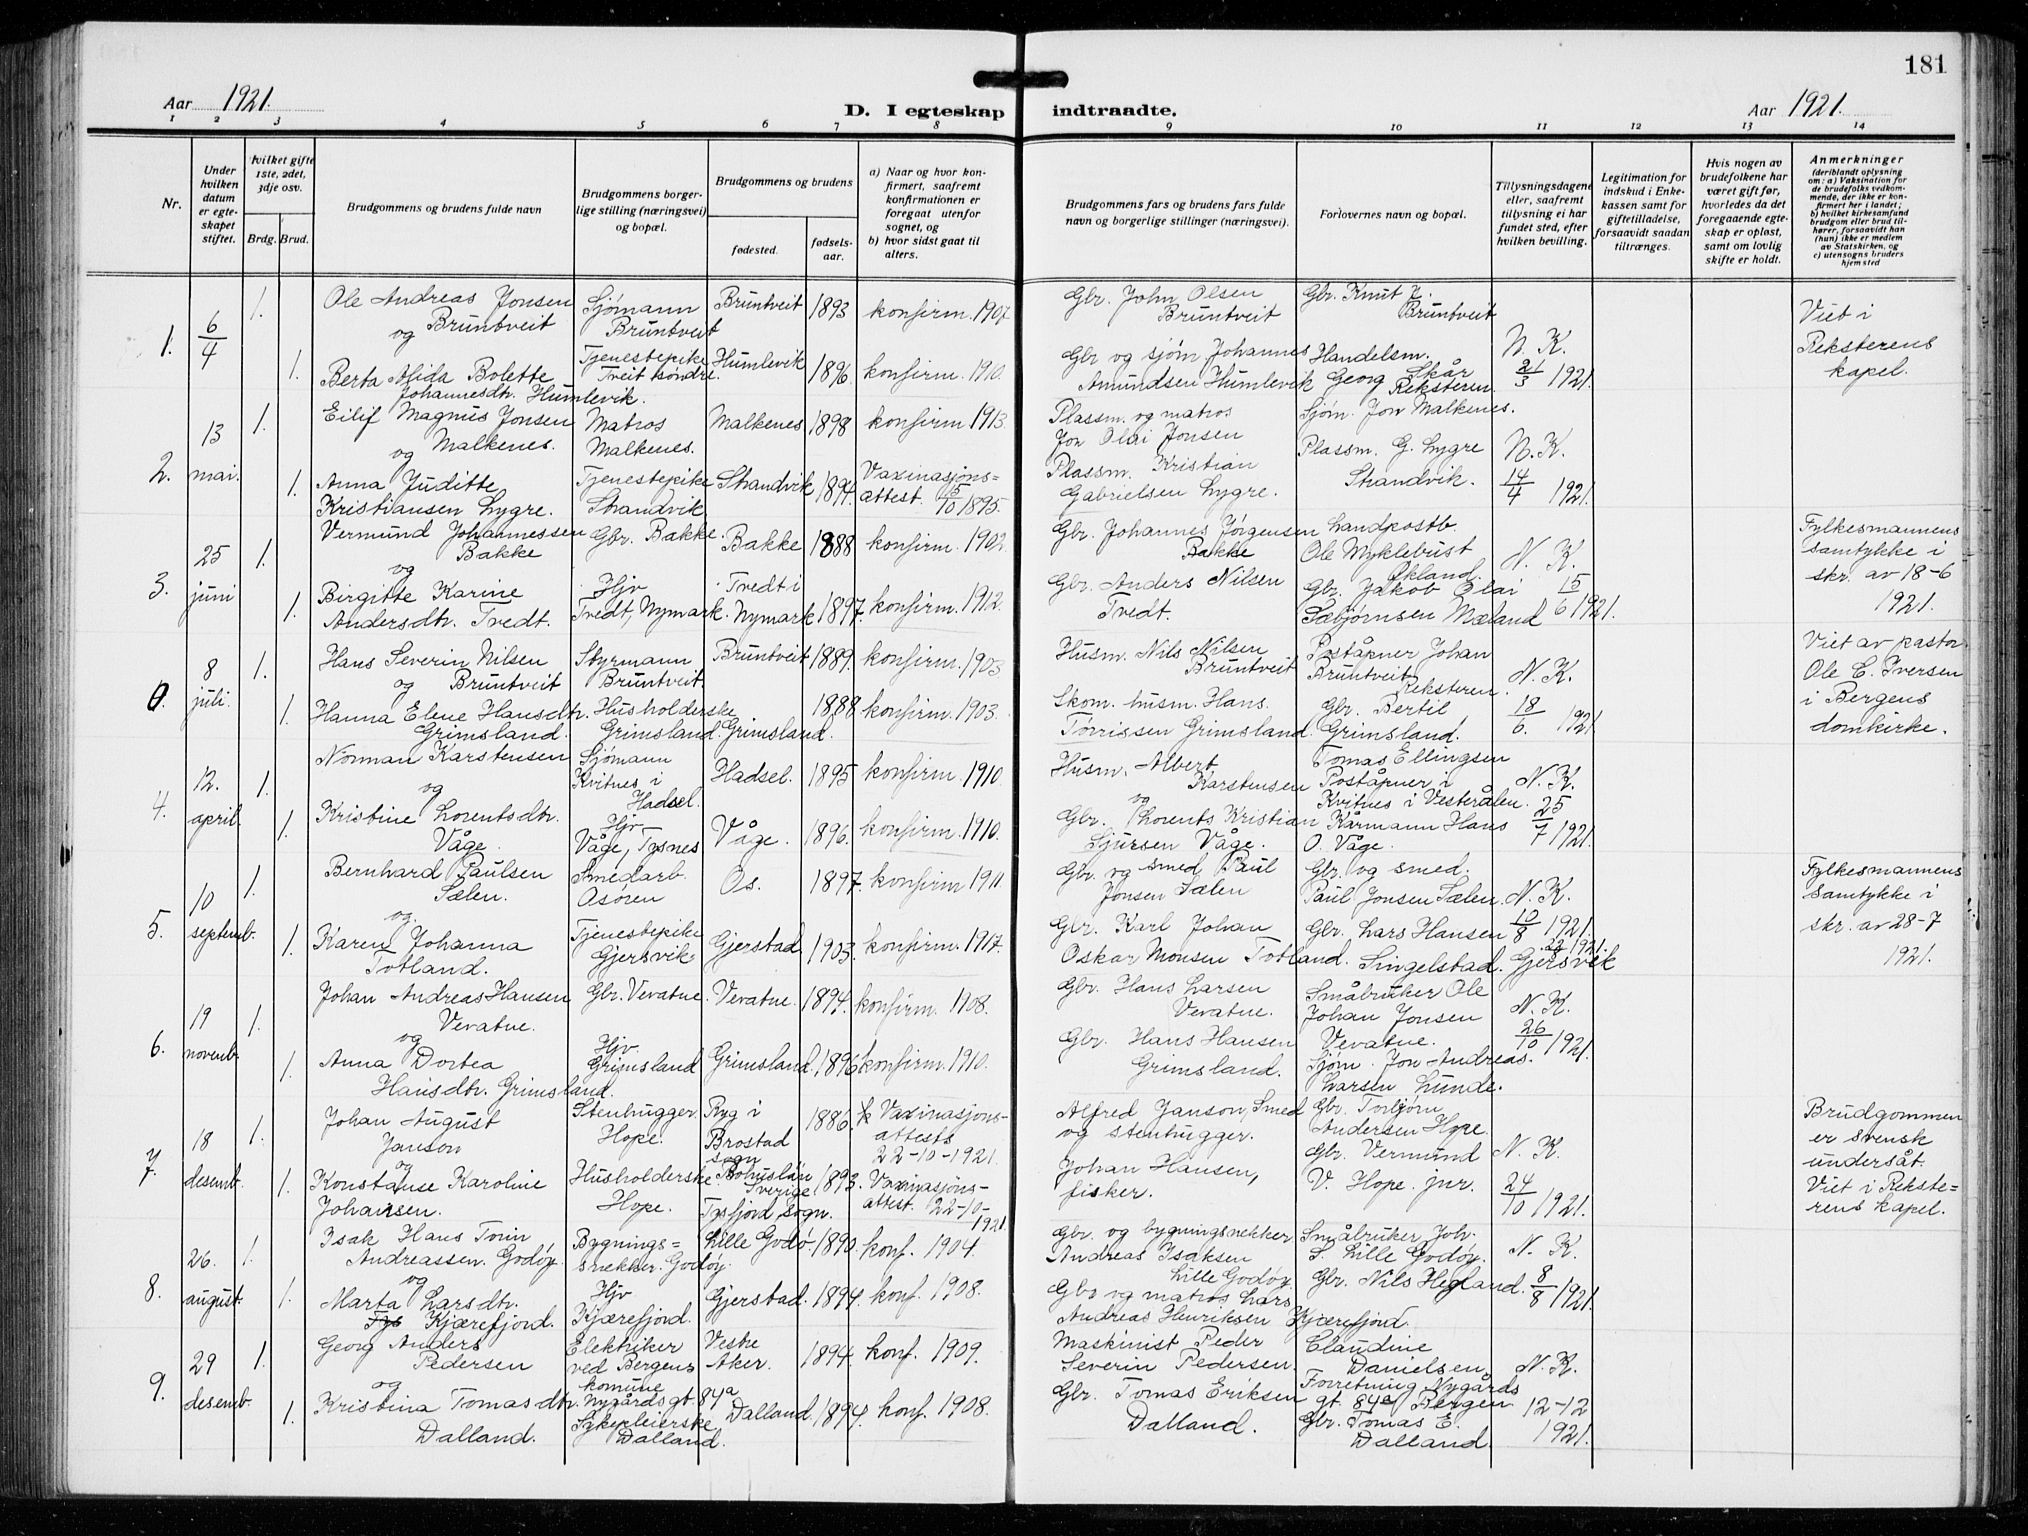 181
Aar 1921.
D. I egteskap indtraadte.
Aar 1921.
1 2 3 4 5 6 7 8 9 10 11 12 13 14
Nr.
Under hvilken datum er egteskapet stiftet.
hvilket gifte 1ste, 2det, 3dje osv.
Brdg. Brud.
Brudgommens og brudens fulde navn
Brudgommens borgerlige stilling (næringsvei) og bopæl.
Brudgommens og brudens
fødested.
fødselsaar.
a) Naar og hvor konfirmert, saafremt konfirmationen er foregaat utenfor sognet, og
b) hvor sidst gaat til alters.
Brudgommens fars og brudens fars fulde navn og borgerlige stillinger (næringsvei).
Forlovernes navn og bopæl.
Tillysningsdagene eller, saafremt tillysning ei har fundet sted, efter hvilken bevilling.
Legitimation for indskud i Enkekassen samt for giftetilladelse, forsaavidt saadan tiltrænges.
Hvis nogen av brudefolkene har været gift før, hvorledes da det foregaaende egteskap er opløst, samt om lovlig skifte er holdt.
Anmerkninger (deriblandt oplysning om: a) Vaksination for de brudefolks vedkommende, der ikke er konfirmert her i landet; b) hvilket kirkesamfund brudgom eller brud tilhører, forsaavidt han (hun) ikke er medlem av Statskirken, og c) utensogns bruders hjemsted
1. 6/4 1. Ole Andreas Jonsen Bruntveit Sjømann Bruntveit Bruntveit 1893 konfirm. 1907 Gbr. John Olsen Bruntveit Gbr. Knut Bruntveit N. K. 21/3 1921. Viet i Reksterens kapel.
og
1. Berta Alida Bolette Johannesdtr. Humlevik. Tjenestepike Tveit søndre. Humlevik 1896. konfirm. 1910. Gbr og sjøm Johannes Amundsen Humlevik Handelsm. Georg Skår Reksteren.
2. 13 mai. 1. Eilif Magnus Jonsen Malkenes. Matros Malkenes. Malkenes 1898 konfirm 1913. Plassm. og matros Jon Olai Jonsen Sjøm. Jon Malkenes. N. K. 14/4 1921.
og
1. Anna Juditte Kristiansen Lygre. Tjenestepike Strandvik Strandvik 1894. Vaxinasjons=attest. 15/10 1895. Plassm. Kristian Gabrielsen Lygre. Plassm. G. Lygre Strandvik.
3. 25 juni 1. Vermund Johannessen Bakke Gbr. Bakke. Bakke 1888 konfirm. 1902. Gbr. Johannes Jørgensen Bakke Landpostb. Ole Myklebust Økland. N. K. 15/6 1921. Fylkesmannens samtykke i skr. av 18-6 1921.
og
1. Birgitte Karine Andersdtr. Tvedt. Hjv Tvedt, Nymark. Tvedt i Nymark 1897. konfirm. 1912. Gbr. Anders Nilsen Tvedt. Gbr. Jakob Olai Sæbjørnsen Mæland
0. 8 juli. 1. Hans Severin Nilsen Bruntveit Styrmann Bruntveit. Bruntveit 1889. konfirm. 1903. Husm. Nils Nilsen Bruntveit Poståpner Johan Bruntveit Reksteren. N. K. 18/6. 1921. Viet av pastor Ole C. Iversen i Bergens domkirke.
og
1. Hanna Elene Hansdtr. Grimsland. Husholderske Grimsland. Grimsland. 1888 konfirm. 1903. Skom. husm. Hans Tørrissen Grimsland. Gbr. Bertil Grimsland.
4. 12. april. 1. Norman Karstensen Sjømann Kvitnes i Hadsel. Hadsel. 1895 konfirm. 1910. Husm. Albert Karstensen Tomas Ellingsen Poståpner i Kvitnes i Vesterålen. N. K. 25/7 1921.
og
1. Kristine Lorentsdtr. Våge. Hjv Våge, Tysnes Våge. 1896. konfirm. 1910. og Gbr. Lorents Kristian Sjursen Våge. Kårmann Hans O. Våge.
5. 10 septemb. 1. Bernhard Paulsen Sælen. Smedarb. Osøren Os. 1897. konfirm 1911. Gbr. og smed Paul Jonsen Sælen Gbr. og smed. Paul Jonsen Sælen N. K. 10/8 1921. Fylkesmannens samtykke i skr. av 28-7 1921.
og.
1. Karen Johanna Totland. Tjenestepike Gjersvik. Gjerstad 1903. konfirm. 1917. Gbr. Karl Johan Oskar Monsen Totland. Gbr. Lars Hansen Singelstad. Gjersvik
6. 19 novemb. 1. Johan Andreas Hansen Vevatne. Gbr. Vevatne. Vevatne. 1894. konfirm. 1908. Gbr. Hans Larsen Vevatne. Småbruker Ole Johan Jonsen Vevatne. N. K. 26/10 1921.
og
1. Anna Dortea Hansdtr. Grimsland. Hjv. Grimsland Grimsland. 1896 konfirm. 1910. Gbr. Hans Hansen Grimsland. Sjøm. Jon Andreas. Larsen Lunde.
7. 18 desemb. 1. Johan August Janson Stenhugger. Hope. Ryg i Brostad sogn Bohuslän Sverige 1886. Vaxinasjons-attests 22-10-1921. Alfred Janson, Smed og stenhugger. Gbr. Torbjørn Andersen Hope. N. K. 24/10 1921. Brudgommen er svensk undersåt. Viet i Reksterens kapel.
og
1. Konstanse Karoline Johansen. Husholderske Hope. Tysfjord sogn. 1893. Vaxinasjons-attest. 22-10-1921. Johan Hansen, fisker. Gbr. Vermund V. Hope. jnr.
8. 26. august. 1. Isak Hans Torin Andreassen. Godøy. Bygnings=snekker. Godøy. Lille Godø. 1890. konf. 1904. Gbr. og bygningsnekker Andreas Isaksen Lille Godøy. Småbruker Joh. S. Lille Godøy. N. K. 8/8 1921.
og
1. Marta Larsdtr. Kjærefjord. Hjv Kjærefjord. Gjerstad. 1894. konf. 1908. Gbr og matros Lars Andreas Henriksen Kjærefjord. Gbr. Nils Hegland.
9. 29 desemb. 1. Georg Anders Pedersen Elektriker ved Bergens komune Nygårdsgt. 84a Vestre Aker. 1894. konf. 1909. Maskinist Peder Severin Pedersen. Claudine Danielsen Forretning Nygårds gt. 84a Bergen N. K. 12-12 1921.
og
1. Kristina Tomasdtr. Dalland. Sykepleierske Dalland. Dalland. 1894. konf. 1908. Gbr. Tomas Eriksen Dalland. Gbr. Tomas E. Dalland.